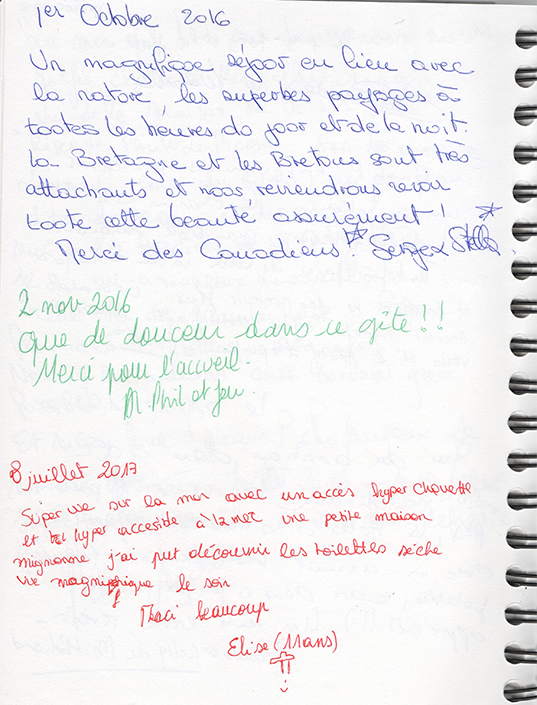 1er Octobre 2016
Un magnifique séjour en lien avec
la nature les superbes paysages à
toutes les heures du jour et de la nuit.
la Bretagne et les Bretons sont très
attachants et nous reviendrons revoir
toute cette beauté assurément !
Merci des Canadiens ! Serge x Stella
2 nov 2016
Que de douceur dans ce gîte !!
Merci pour l'accueil.
Phil et
8 juillet 2017
Super vue sur la mer avec un accès hyper chouette
et hyper accesible à la mer une petite maison
mignonne j'ai put découvrir les toilettes sèche
vue magnifique le soir
Merci beaucoup
Elise (11 ans)